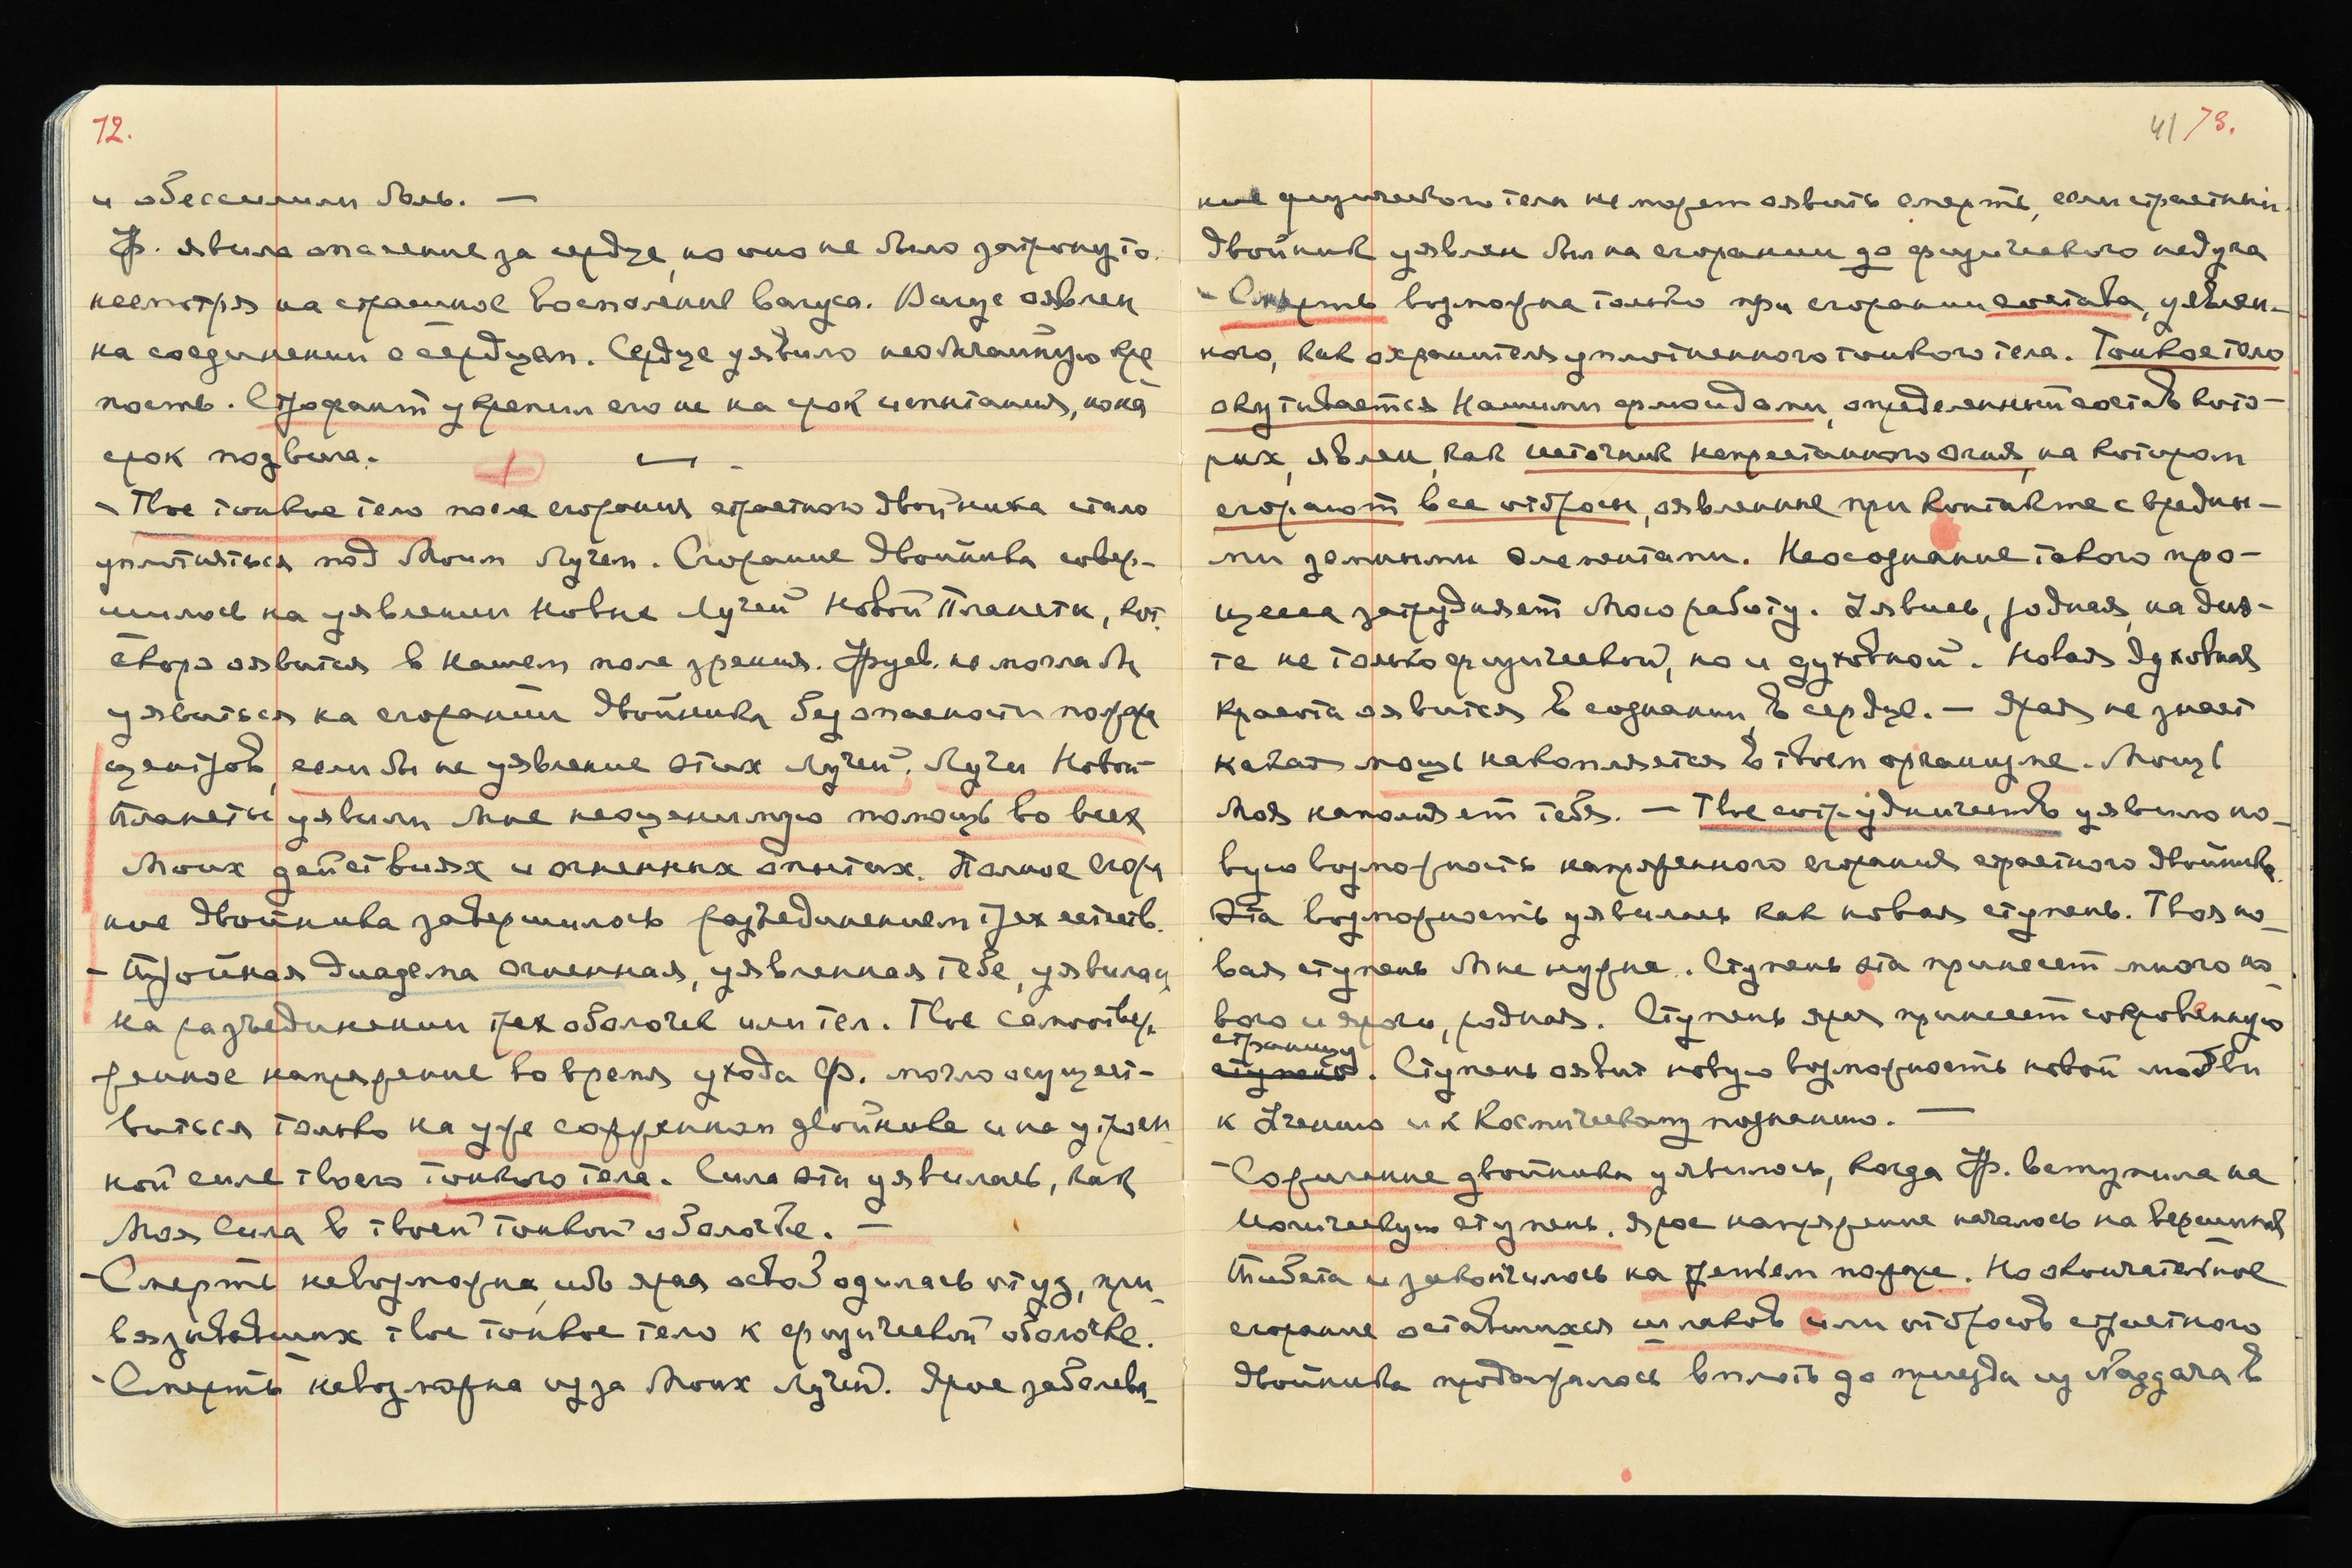 72.
и обессилили боль. —
Ур. явила опасение за сердце, но оно не было затронуто.
несмотря на страшное воспаление вагуса. Вагус оявлен
на соединении с сердцем. Сердце уявило необычайную кре
пость. Строфант укрепил его не на срок испытания, но на
срок подвига.
- Твое тонкое тело после сгорания страстного двойника стало
уплотняться под Моим Лучем. Сгорание двойника совер-
шилось на уявлении Новых Лучей Новой Планеты, кот.
скоро оявится в Нашем поле зрения. Урусв. не могла бы
уявиться на сгорании двойника без опасности пожара
центров, если бы не уявление этих Лучей. Лучи Новой
Планеты уявили Мне неоценимую помощь во всех
Моих действиях и огненных опытах. Полное сгора
ние двойника завершилось разъединением трех естеств.
- Тройная диадема огненная, уявленная тебе, уявилась
на разъединении трех оболочек или тел. Твое самоотвер-
женное напряжение во время ухода Ф. могло осущест-
виться только на уже сожженном двойнике и на утроен
ной силе твоего тонкого тела. Сила эта уявилась, как
Моя Сила в твоей тонкой оболочке. —
- Смерть невозможна, ибо ярая освободилась от уз, при-
вязывавших твое тонкое тело к физической оболочке.
- Смерть невозможна из за Моих Лучей. Ярое заболева-
41 73.
ние физического тела не может оявить смерть, если страстный
двойник уявлен был на сгорании до физического недуга
- Смерть возможна только при сгорании состава, уявлен-
ного, как охранителя уплотненного тонкого тела. Тонкое тело
окутывается Нашими флюидами, определенный состав кото-
рых, явлен, как источник непрестанного огня, на котором
сгорают все отбросы, оявленные при контакте с вредны-
ми земными элементами. Неосознание такого про-
цесса затрудняет Мою работу. Уявись, родная, на дие-
те не только физической, но и духовной. Новая духовная
красота оявится в сознании, в сердце. — Ярая не знает
какая мощь накопляется в твоем организме. Мощь
Моя наполняет тебя. — Твое сотрудничество уявило но-
вую возможность напряженного сгорания страстного двойника.
Эта возможность уявилась как новая ступень. Твоя но-
вая ступень Мне нужна. Ступень эта принесет много но-
вого и ярого, родная. Ступень ярая принесет сокровенную
страницу
ступень. Ступень оявит новую возможность новой любви
к Учению и к Космическому познанию. —
- Сожжение двойника уявилось, когда Ур. вступила на
Космическую ступень. Ярое напряжение началось на вершинах
Тибета и закончилось на третьем пожаре. Но окончательное
сгорание оставшихся шлаков или отбросов страстного
двойника продолжалось вплоть до приезда из Наггара в